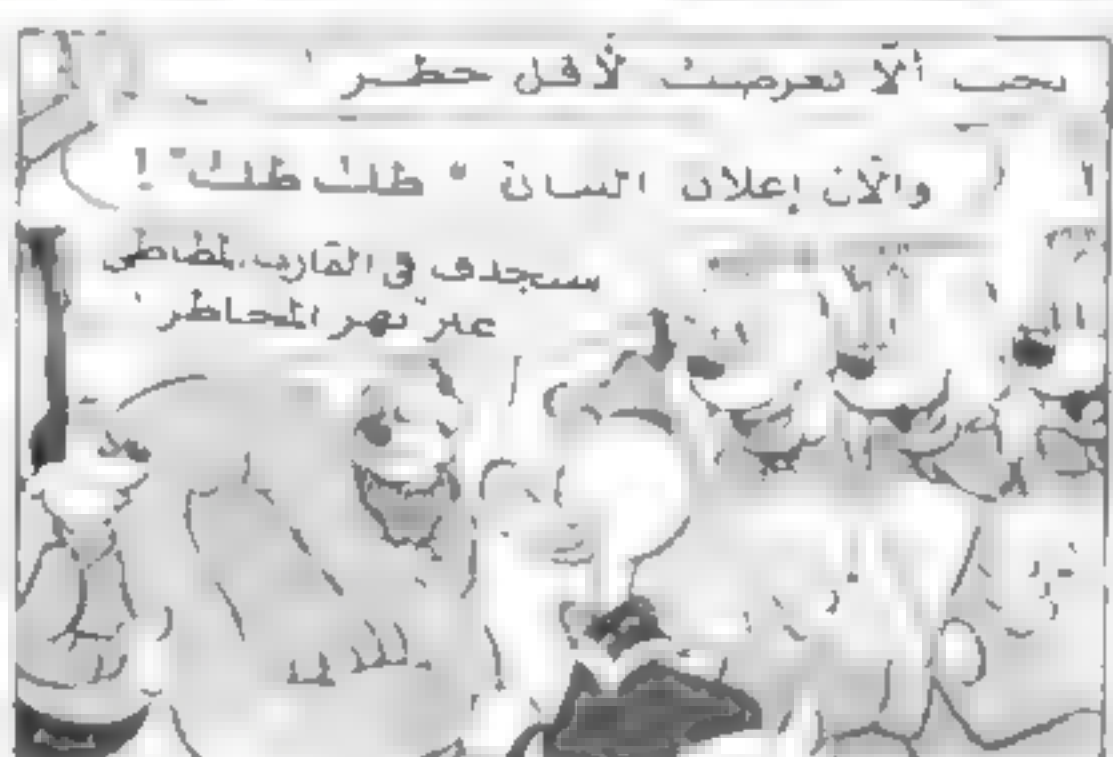 يجب ألّا نعرضك لأقل خطر
والآن إعلان السان " طك طك " !
سنجدف في القارب المطاطي
عبر نهر المخاطر